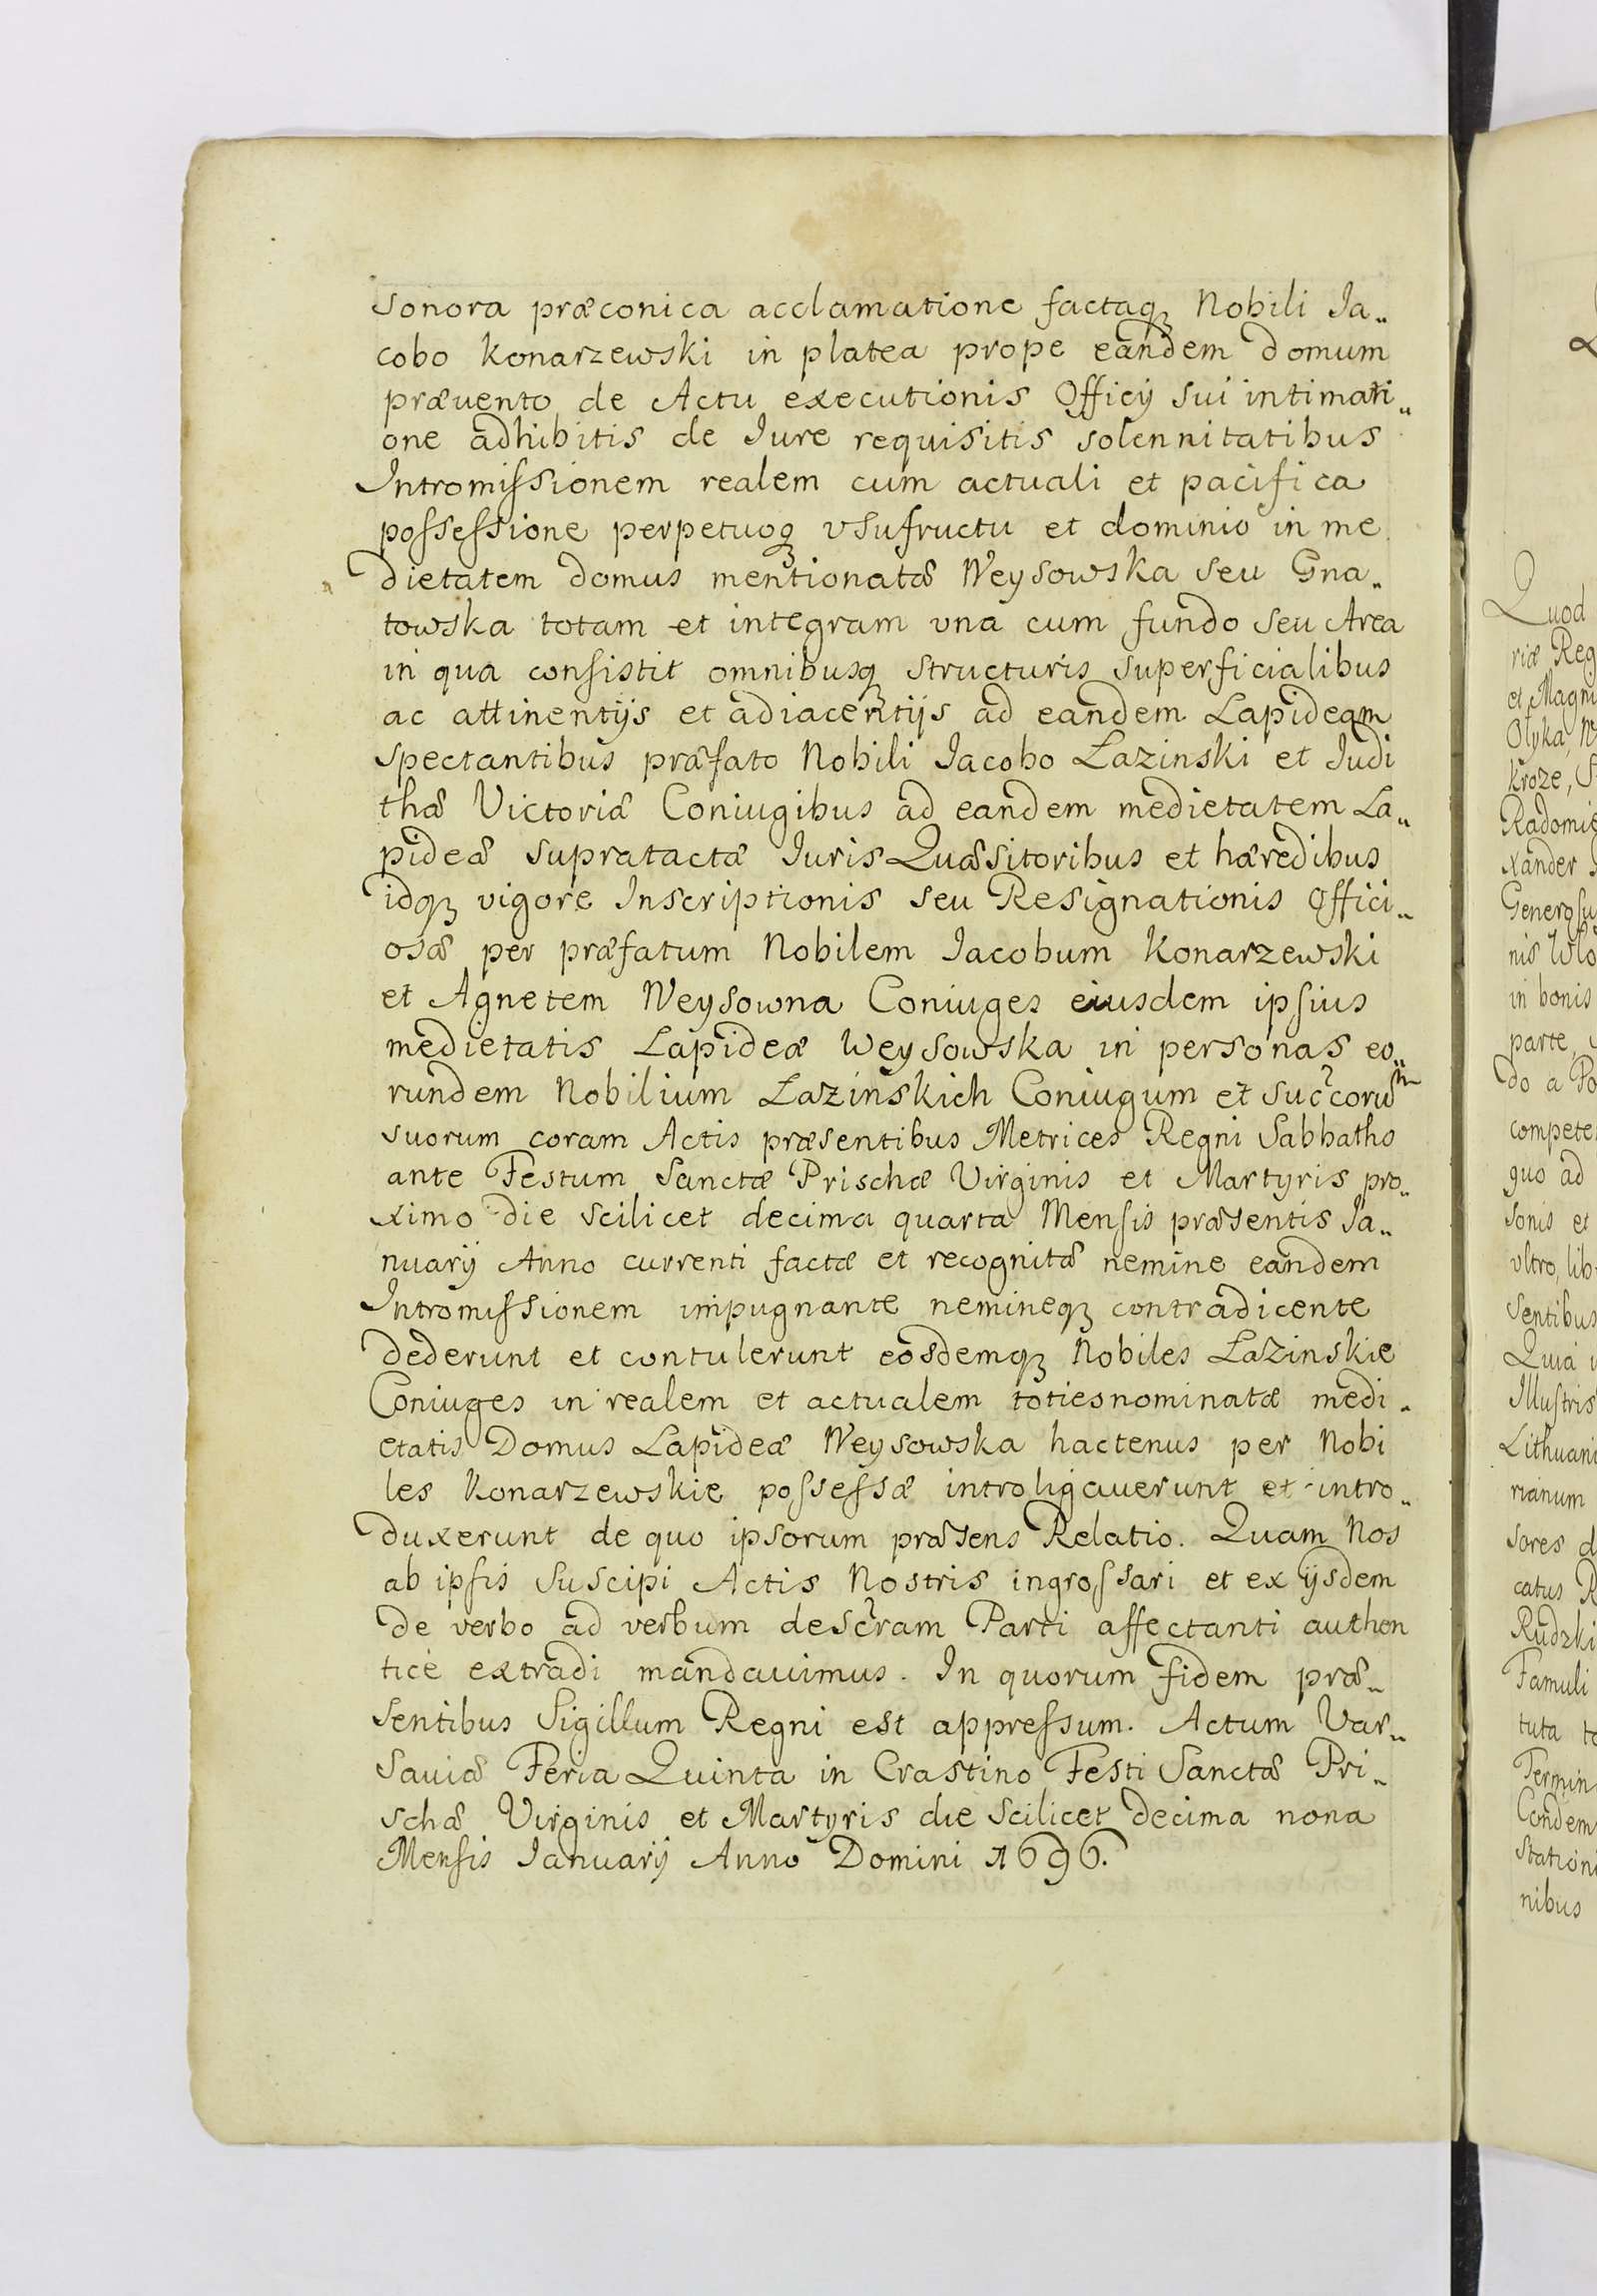 sonora præconica acclamatione factaq₃ Nobili Ia„
cobo Konarzewski in platea prope eandem domum
præuento de Actu executionis Officÿ sui intimati„
one adhibitis de Iure requisitis solennitatibus
Intromissionem realem cum actuali et pacifica
possessione perpetuoq₃ vsufructu et dominio in me
dietatem domus mentionatæ Weysowska seu Gna„
towska totam et integram vna cum fundo seu Area
in qua consistit omnibusq₃ structuris superficialibus
ac attinentÿs et adiacentÿs ad eandem Lapideam
spectantibus præfato Nobili Iacobo Łazinski et Iudi
thæ Victoriæ Coniugibus ad eandem medietatem La„
pideæ supratactæ Iuris Quæsitoribus et hæredibus
idq₃ vigore Inscriptionis seu Resignationis Offici„
osæ per præfatum Nobilem Iacobum Konarzewski
et Agnetem Weysowna Coniuges eiusdem ipsius
medietatis Lapideæ Weysowska in personas eo„
rundem Nobilium Łazinskich Coniugum et succorum
suorum coram Actis præsentibus Metrices Regni Sabbatho
ante Festum Sanctæ Prischæ Virginis et Martyris pro„
ximo die scilicet decima quarta Mensis præsentis Ia„
nuarÿ Anno currenti factæ et recognitæ nemine eandem
Intromissionem impugnante nemineq₃ contradicente
dederunt et contulerunt eosdemq₃ Nobiles Łazinskie
Coniuges in realem et actualem totiesnominatæ medi„
etatis Domus Lapideæ Weysowska hactenus per Nobi
les Konarzewskie possessæ introligauerunt et intro„
duxerunt de quo ipsorum præsens Relatio. Quam Nos
ab ipsis suscipi Actis Nostris ingrossari et ex ÿsdem
de verbo ad verbum descram Parti affectanti authen
tice extradi mandauimus. In quorum fidem præ„
sentibus Sigillum Regni est appressum. Actum Var„
sauiæ Feria Quinta in Crastino Festi Sanctæ Pri„
schæ Virginis et Martyris die scilicet decima nona
Mensis Ianuarÿ Anno Domini 1696.
Quod
riæ Reg
et Magni
Olyka,
Kroze,
Radomie
xander
Generosu
nis Wlo
in bonis
parte,
do a Po
compete
quo ad
sonis et
vltro, lib
sentibus
Quia
Illustris
Lithuani
rianum
sores d
catus R
Rudzki
Famuli
tuta te
Termin
Condem
Stationi
nibus